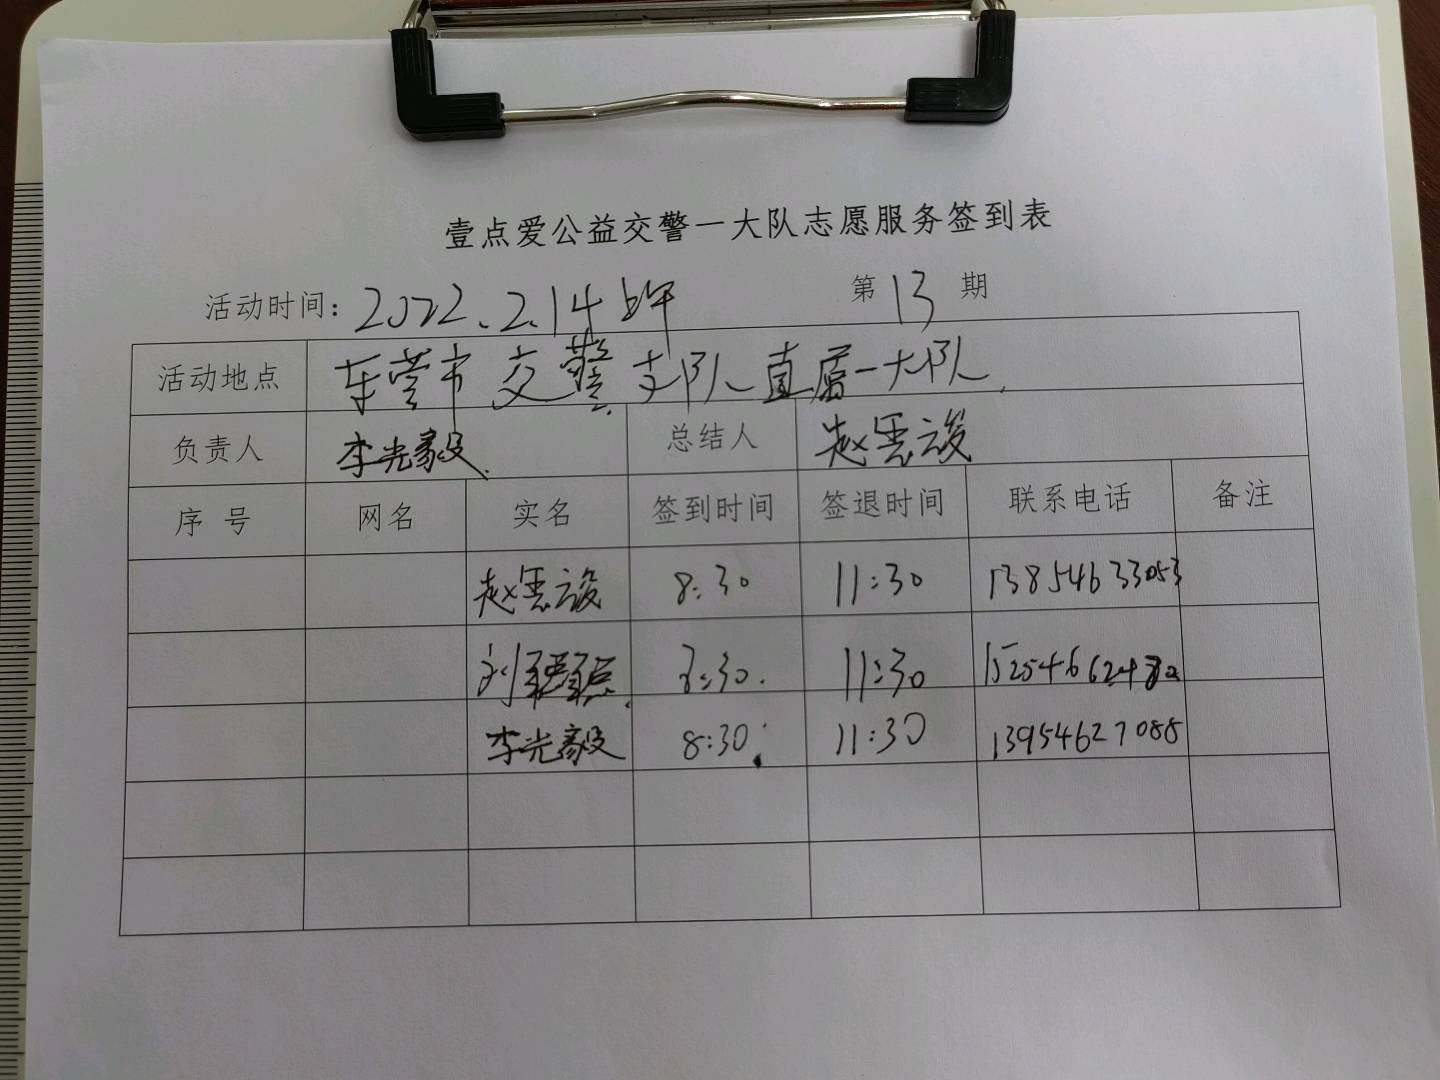 壹点爱公益交警一大队志愿服务签到表
活动时间：2022.2.14上午 第13期
活动地点 东营市交警支队直属一大队
负责人 李光毅 总结人
序号 网名 实名 签到时间 签退时间 联系电话 备注
8:30 11:30 13854633053
刘 8:30. 11:30
李光毅 8:30. 11:30 13954627088